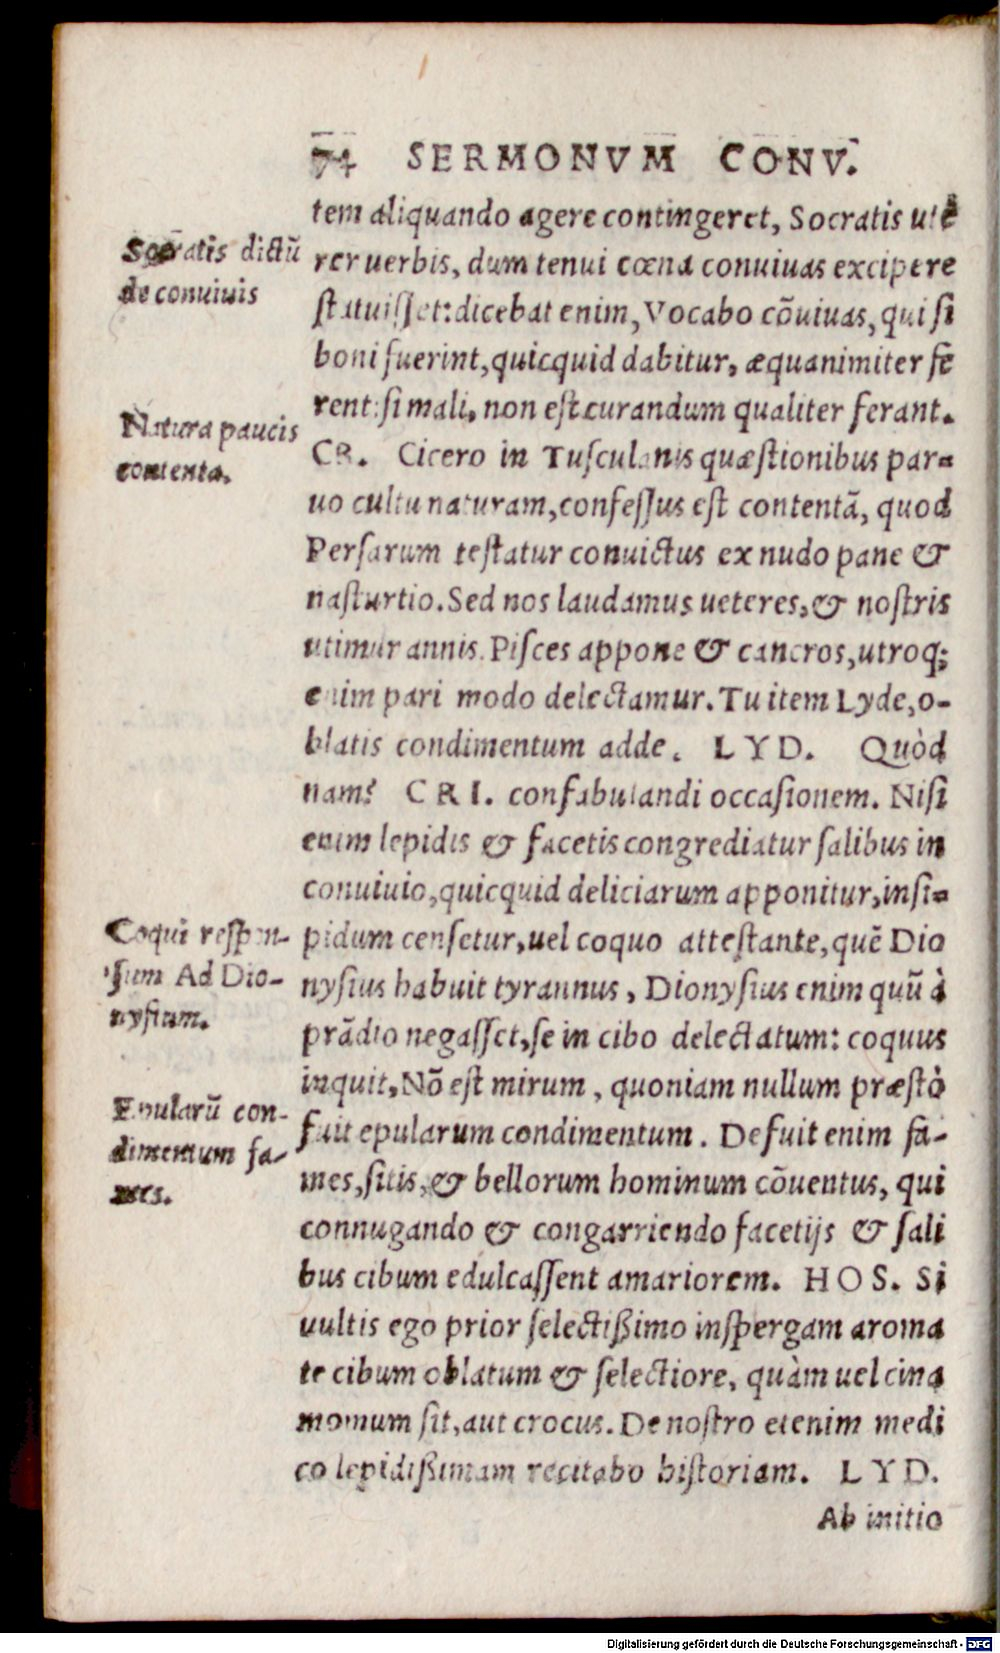 74 SERMONVM CONV.
tem aliquando agere contingeret, Socratis utē
rer uerbis, dum tenui cœna conuiuas excipere
ſtatuiſſet: dicebat enim, Vocabo cōuiuas, qui ſi
boni fuerint, quicquid dabitur, æquanimiter fe
rent: ſi mali, non eſt curandum qualiter ferant.
CR. Cicero in Tuſculanis quæſtionibus par=
uo cultu naturam, confeſſus eſt contentā, quod
Perſarum teſtatur conuictus ex nudo pane &
naſturtio. Sed nos laudamus ueteres, & noſtris
utimur annis. Piſces appone & cancros, utroq;
enim pari modo delectamur. Tu item Lyde, o-
blatis condimentum adde. LYD. Quòd
nam? CRI. confabulandi occaſionem. Niſi
enim lepidis & facetis congrediatur ſalibus in
conuiuio, quicquid deliciarum apponitur, inſi=
pidum cenſetur, uel coquo atteſtante, quē Dio
nyſius habuit tyrannus, Dionyſius enim quū à
prādio negaſſet, ſe in cibo delectatum: coquus
inquit, Nō eſt mirum, quoniam nullum præſtò
fuit epularum condimentum. Defuit enim fa-
mes, ſitis, & bellorum hominum cōuentus, qui
connugando & congarriendo facetijs & ſali
bus cibum edulcaſſent amariorem. HOS. Si
uultis ego prior ſelectißimo inſpergam aroma
te cibum oblatum & ſelectiore, quàm uel cina
momum ſit, aut crocus. De noſtro etenim medi
co lepidißimam recitabo hiſtoriam. LYD.
Ab initio
Socratis dictū
de conuiuis
Natura paucis
contenta.
Coqui reſpon-
ſum Ad Dio-
nyſium.
Epularū con-
dimentum fa-
mes.
Digitalisierung gefördert durch die Deutsche Forschungsgemeinschaft - DFG